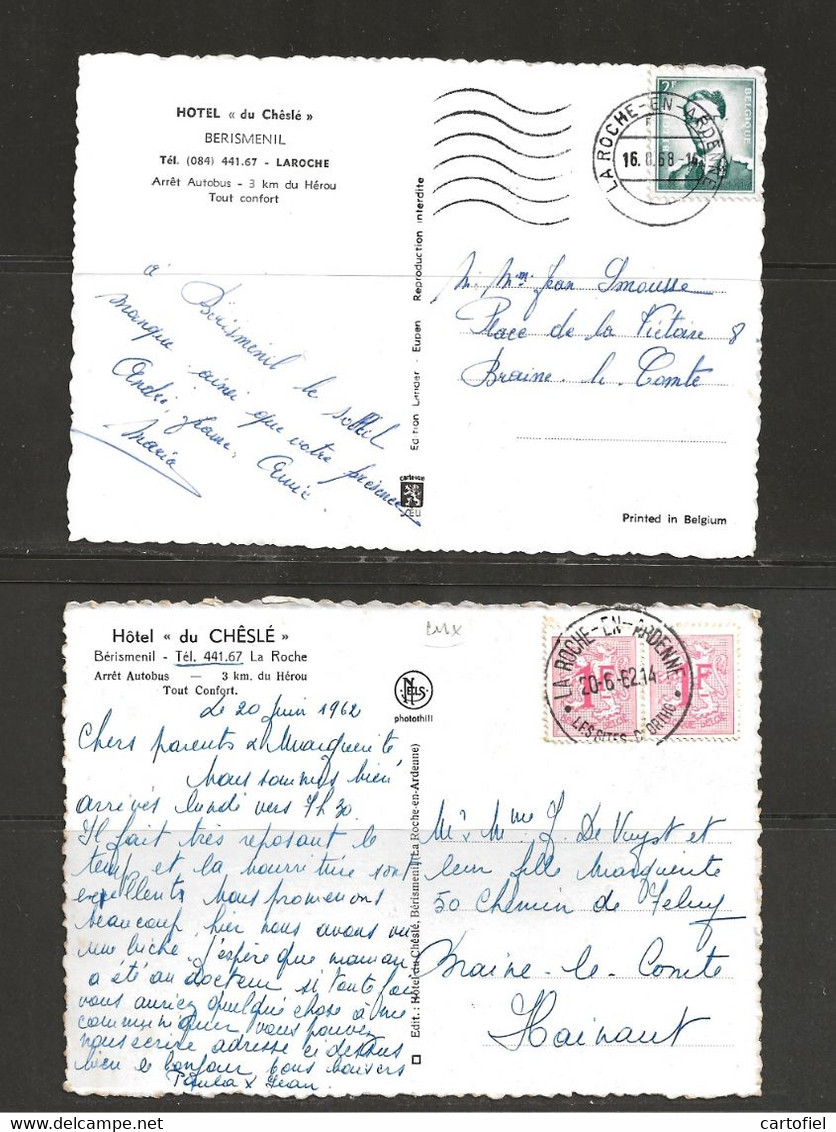 HOTEL « du Chêslé »
BERISMENIL
Tél. (084) 441.67 - LAROCHE
Arrêt Autobus - 3 km du Hérou
Tout confort
à Bérismenil le soleil
manque ainsi que votre présence
André, Jeanne, Annie.
Maria
Edition Lander Eupen Reproduction interdite
cartevue
2F
BELGIQUE
LA ROCHE-EN-ARDENNE
M. Mme Jean Smousse
Place de la Victoire 8
Braine-le-Comte
Printed in Belgium
Hôtel « du CHÊSLÉ »
Bérismenil - Tél. 441.67 La Roche
Arrêt Autobus — 3 km. du Hérou
Tout Confort.
Le 20 Juin 1962
Chers parents & Marguerite
Nous sommes bien
arrivés lundi vers 7h 30.
Il fait très reposant le
temps et la nourriture sont
excellents Nous promenons
beaucoup, hier nous avons vu
une biche. J'espère que maman
a été au docteur si toutefois
vous auriez quelque chose à me
communiquer vous pouvez
nous écrire adresse ci dessus
bien le bonjour bons baisers
Paula & Jean.
NELS
photothill
Edit. : Hôtel du Chêslé, Bérismenil (La Roche-en-Ardenne)
LA ROCHE-EN-ARDENNE
20-6-62.14
1F
1F
Mr & Mme J. De Vuyst et
leur fille Marguerite
50 Chemin de Feluy
Braine-le-Comte
Hainaut
cartofiel